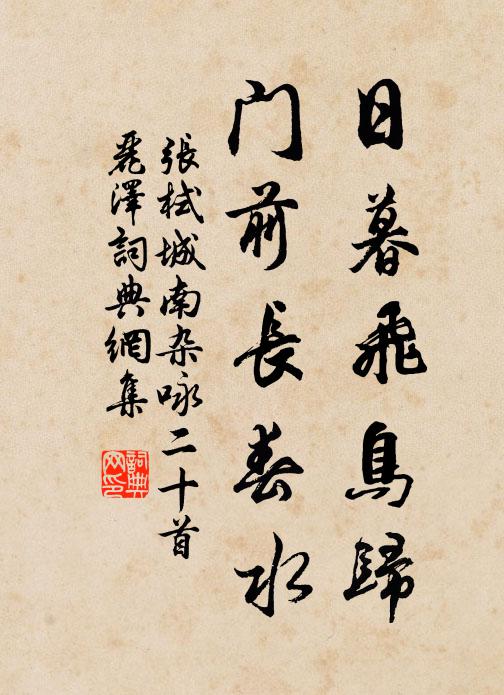 日暮飛鳥歸
門前長春水
張栻城南杂咏二十首
麗澤詞典網集
詞典
网印